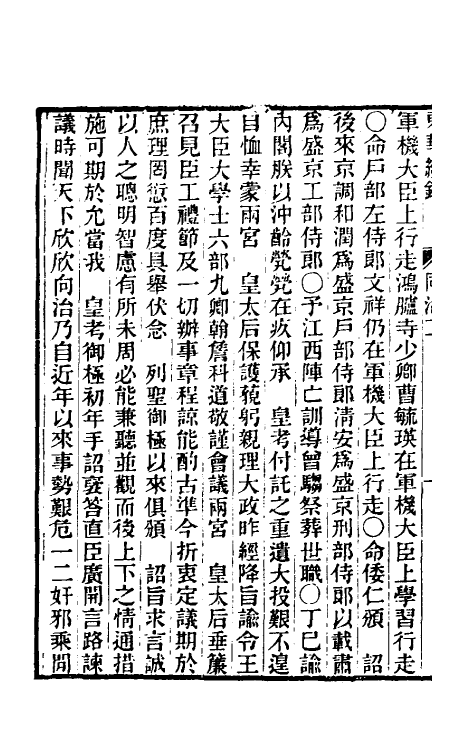 軍機大臣上行走鴻臚寺少卿曹毓瑛在軍機大臣上學習行走
〇命戶部左侍郎文祥仍在軍機大臣上行走〇命倭仁頒　詔
後來京調和潤爲盛京戶部侍郎淸安爲盛京刑部侍郎以載肅
爲盛京工部侍郎〇予江西陣亡訓導曾騶祭葬世職〇丁巳諭
內閣朕以沖齡煢煢在疚仰承　皇考付託之重遺大投艱不遑
自恤幸蒙兩宮　皇太后保護藐躬親理大政昨經降旨諭令王
大臣大學士六部九卿翰詹科道敬謹會議兩宮　皇太后垂簾
召見臣工禮節及一切辦事章程諒能酌古準今折衷定議期於
庶理罔愆百度具舉伏念　列聖御極以來俱頒　詔旨求言誠
以人之聰明智慮有所未周必能兼聽並觀而後上下之情通措
施可期於允當我　皇考御極初年手詔褒答直臣廣開言路諫
議時聞天下欣欣向治乃自近年以來事勢艱危一二奸邪乘閒